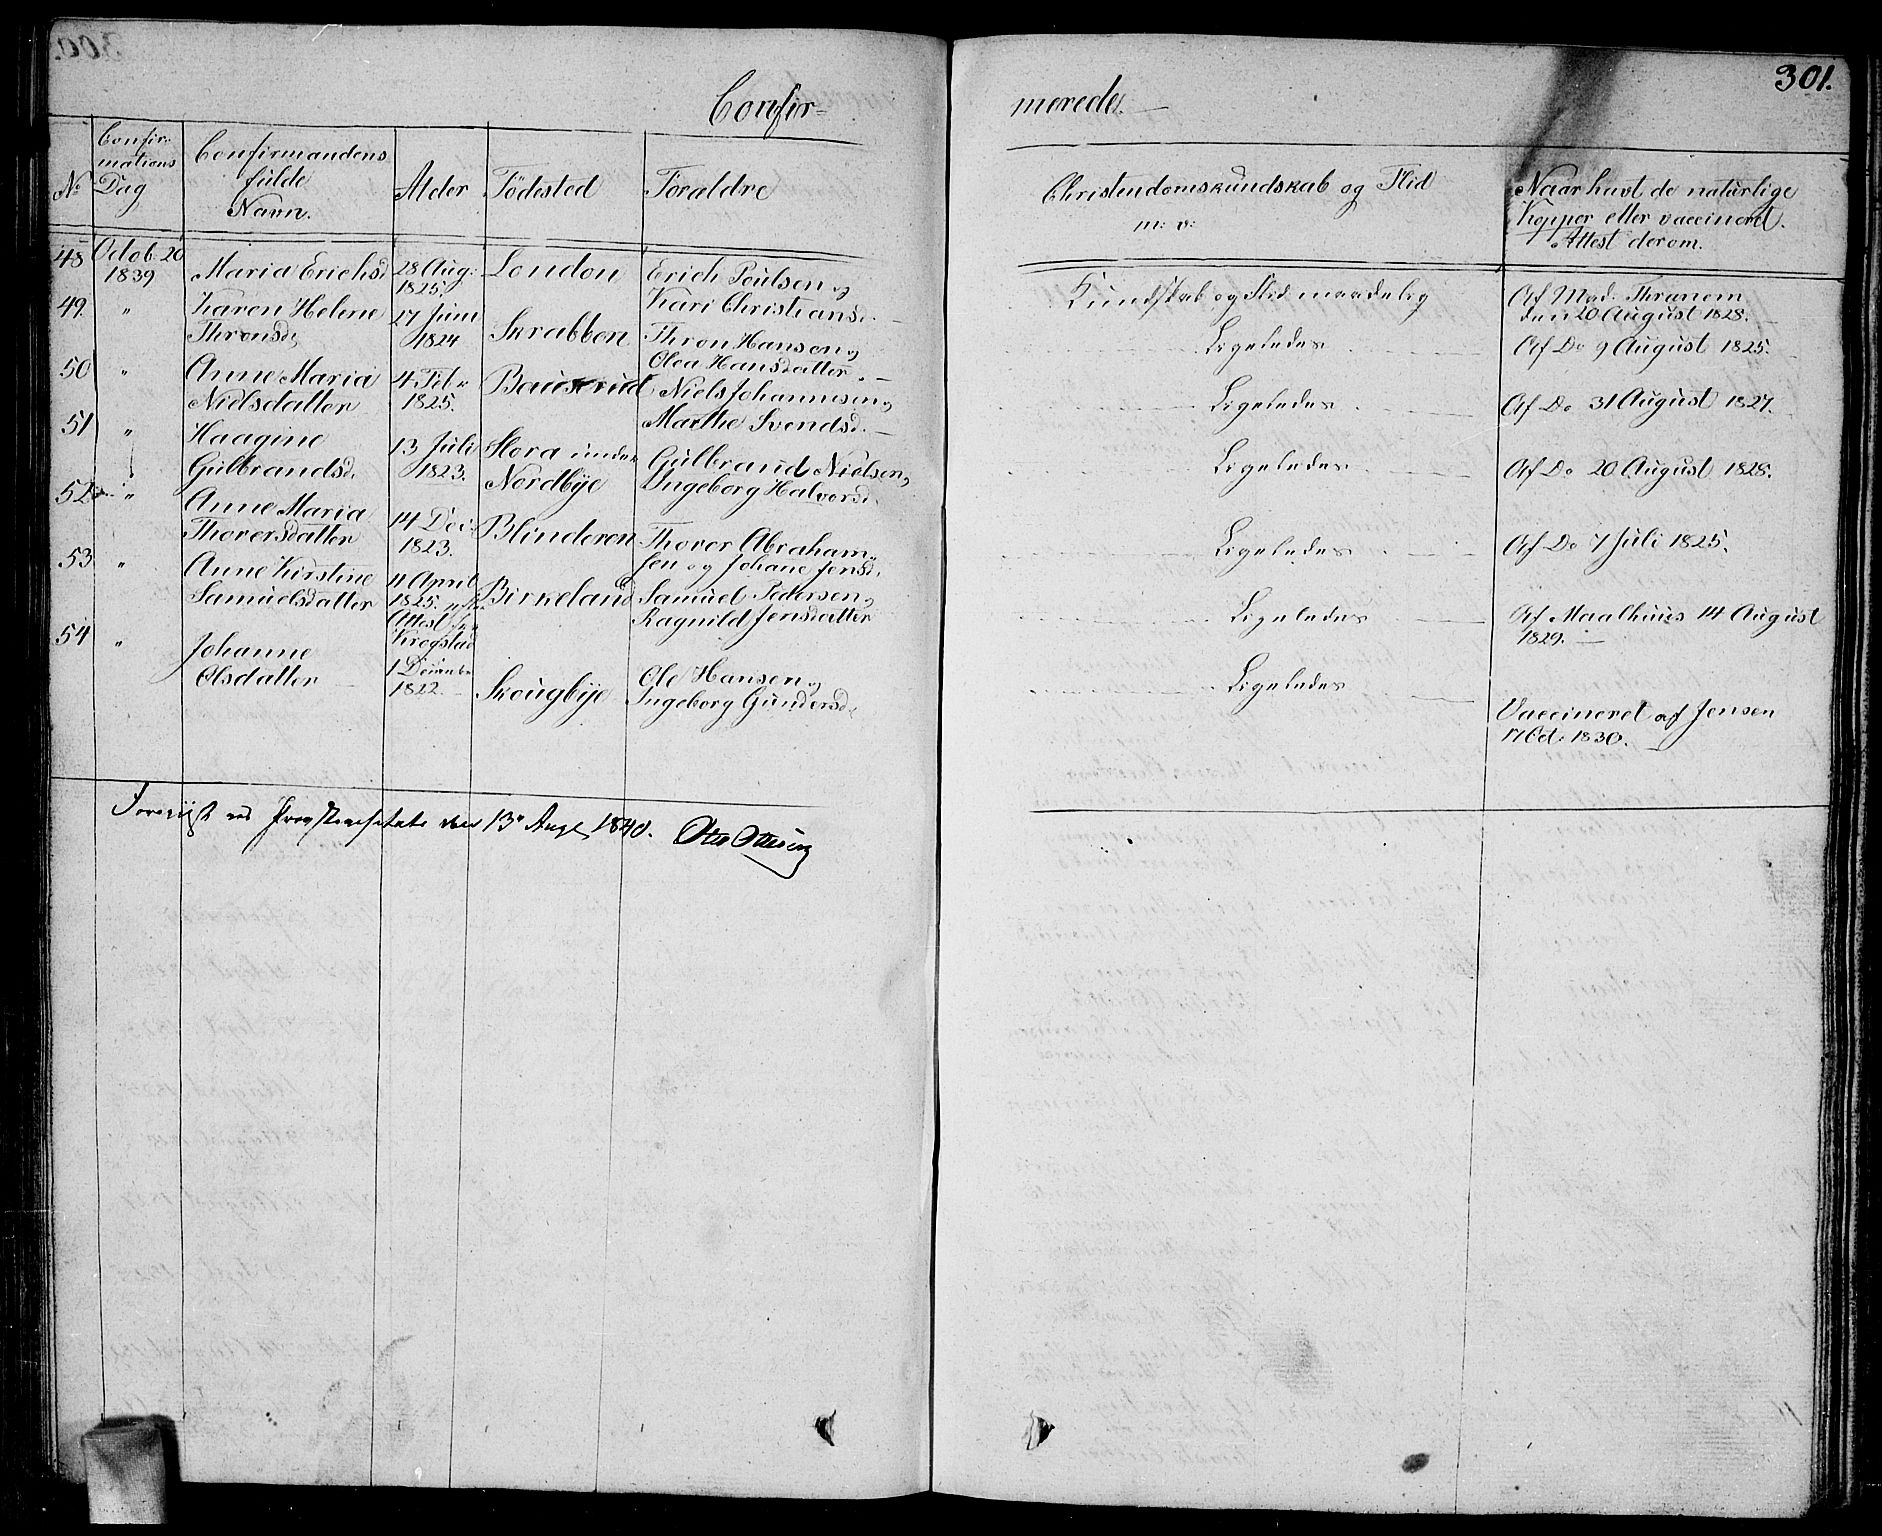 301.
Confir=
merede.
No
Confir=
mations
Dag
Confirmandens
fulde
Navn.
Alder
Födested
Forældre
Christendomskundskab og Flid
m: v:
Naar havt de natúrlige
Kopper eller vaccineret.
Attest derom.
48
Octob. 20
1839
Maria Erichsd
28 Aug:
1825.
London
Erich Poulsen og
Kari Christiansd.
Kundskab og Flid maadelig
Af Mad. Thranem
den 20 August 1828.
49.
"
Karen Helene
Thronsd.
17 Juni
1824
Skrabben
Thron Hansen og
Olea Hansdatter.
Ligeledes
Af Do 9 August 1825.
50
"
Anne Maria
Nielsdatter
4 Feb.
1825.
Bauserud
Niels Johannesen og
Marthe Svendsd.
Ligeledes
Af Do 31 August 1827.
51
"
Haagine
Gulbrandsd.
13 Juli
1823.
Mora under
Nordbye
Gulbrand Nielsen og
Ingeborg Halvorsd.
Ligeledes
Af Do 20 August 1828.
52
"
Anne Maria
Thorersdatter
14 Dec.
1823.
Blinderen
Thorer Abraham=
sen og Johane Jensd.
Ligeledes
Af Do 7 Juli 1825.
53
"
Anne Kirstine
Samuelsdatter
4 April
1825.
Attest fra
Krogstad
Birkeland
Samuel Pedersen og
Ragnild Jensdatter
Ligeledes
Af Maalhuus 14 August
1829.
54
"
Johanne
Olsdatter
1 Decembr
1822.
Skougbye
Ole Hansen og
Ingeborg Gundersd.
Ligeledes
Vaccineret af Jensen
17 Oct. 1830.
Foreviist ved Provstevisitats den 13de Aug. 1840.